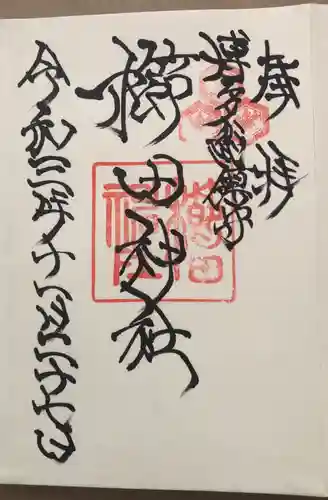 奉拝
博多總鎮守
櫛田神社
令和三年十一月二十七日
櫛田
神社